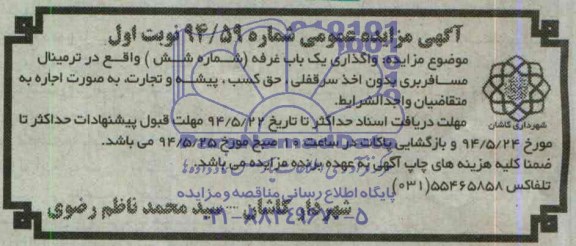 آگهی مزایده عمومی شماره ۹۴/۵۹ نوبت اول
موضوع مزایده: واگذاری یک باب غرفه (شماره شش) واقع در ترمینال
مسافربری بدون اخذ سرقفلی، حق کسب، پیشه و تجارت، به صورت اجاره به
متقاضیان واجدالشرایط.
مهلت دریافت اسناد حداکثر تا تاریخ ۹۴/۵/۲۲ مهلت قبول پیشنهادات حداکثر تا
مورخ ۹۴/۵/۲۴ و بازگشایی پاکات در ساعت ۱۰ صبح مورخ ۹۴/۵/۲۵ می باشد.
ضمنا کلیه هزینه های چاپ آگهی به عهده برنده مزایده می باشد.
تلفاکس ۵۵۴۶۵۸۵۸(۰۳۱)
پایگاه اطلاع رسانی مناقصه ومزایده
شهردار کاشان ... سید محمد ناظم رضوی
شهرداری کاشان